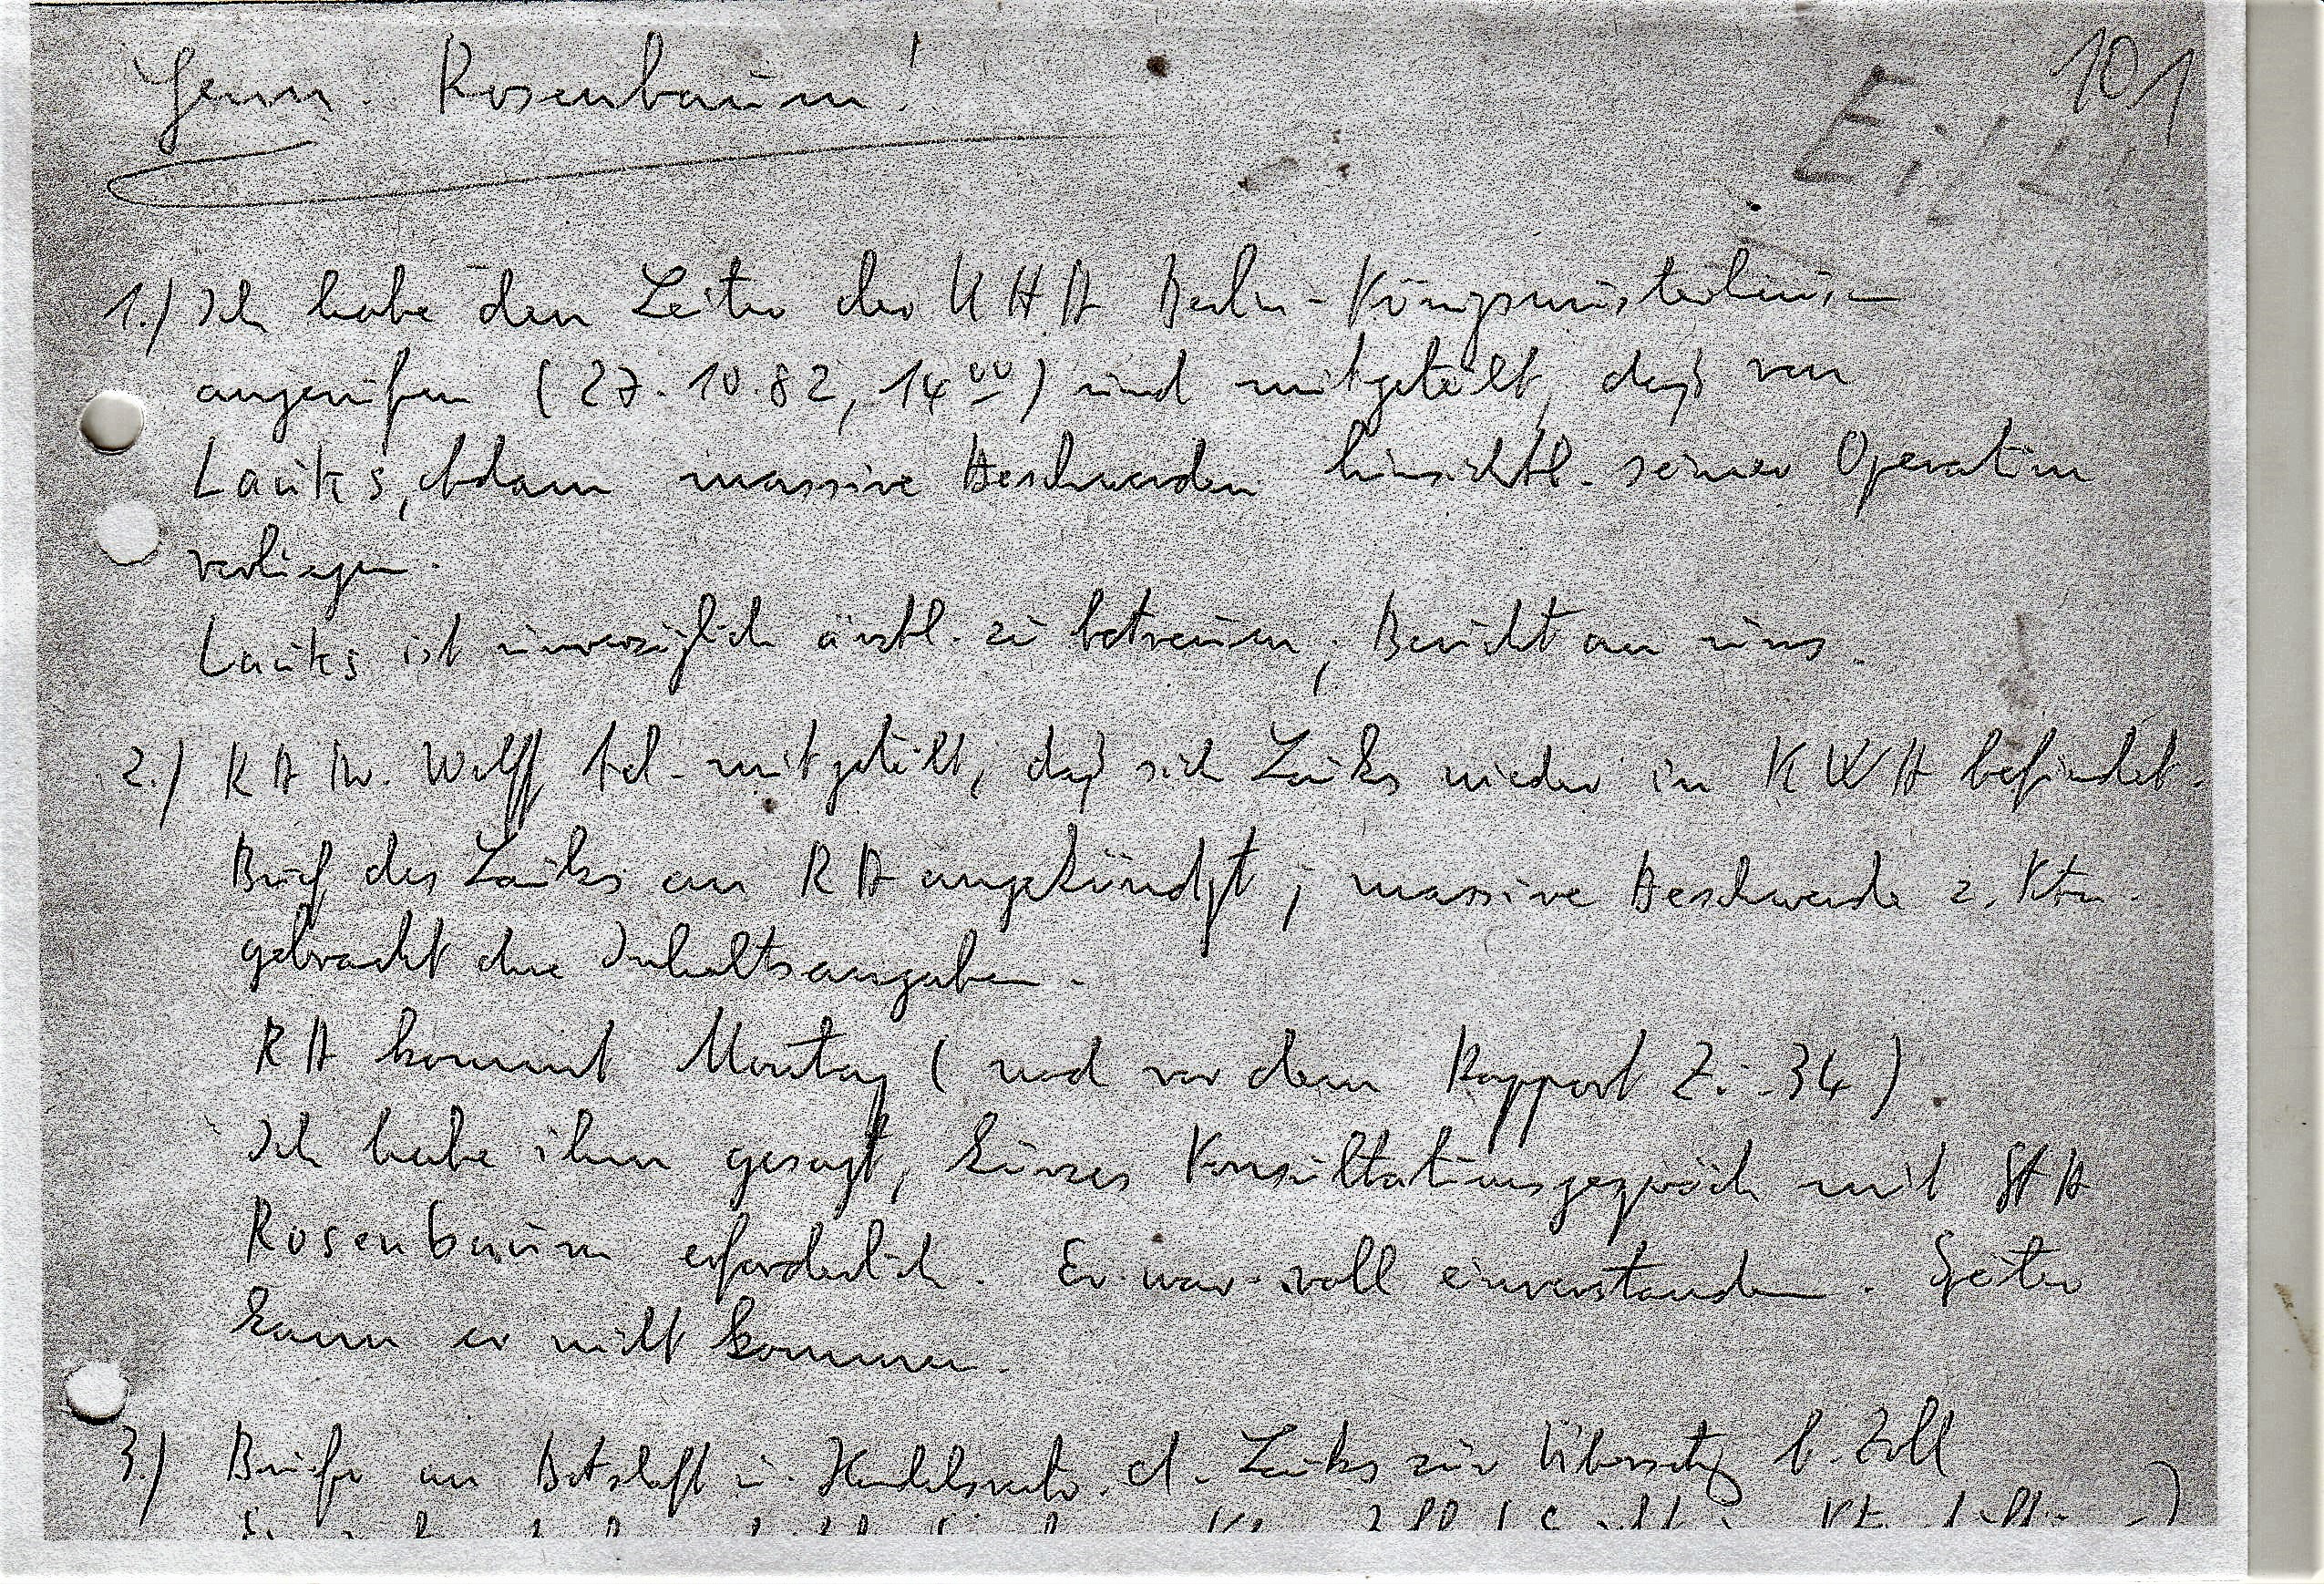 Genn. Rosenbaum!
101
Eilt!
1.) Ich habe den Leiter der UHA Berlin-Königswusterhausen
angerufen (27.10.82, 14⁰⁰) und mitgeteilt, daß von
Lauks, Adam massive Beschwerden hinsichtl. seiner Operation
vorliegen.
Lauks ist unverzüglich ärztl. zu betreuen; Bericht an uns.
2.) RA Dr. Wolff tel. mitgeteilt, daß sich Lauks wieder in KWH befindet.
Brief des Lauks an RA angekündigt; massive Beschwerde z. Ktn.
gebracht ohne Inhaltsangaben.
RA kommt Montag (noch vor dem Rapport Zi. 34).
Ich habe ihm gesagt, kurzes Konsultationsgespräch mit StA
Rosenbaum erforderlich. Er war voll einverstanden. Später
kann er nicht kommen.
3.) Briefe an Botschaft u. Handelsvertr. d. Lauks zur Übersetzg b. Zoll